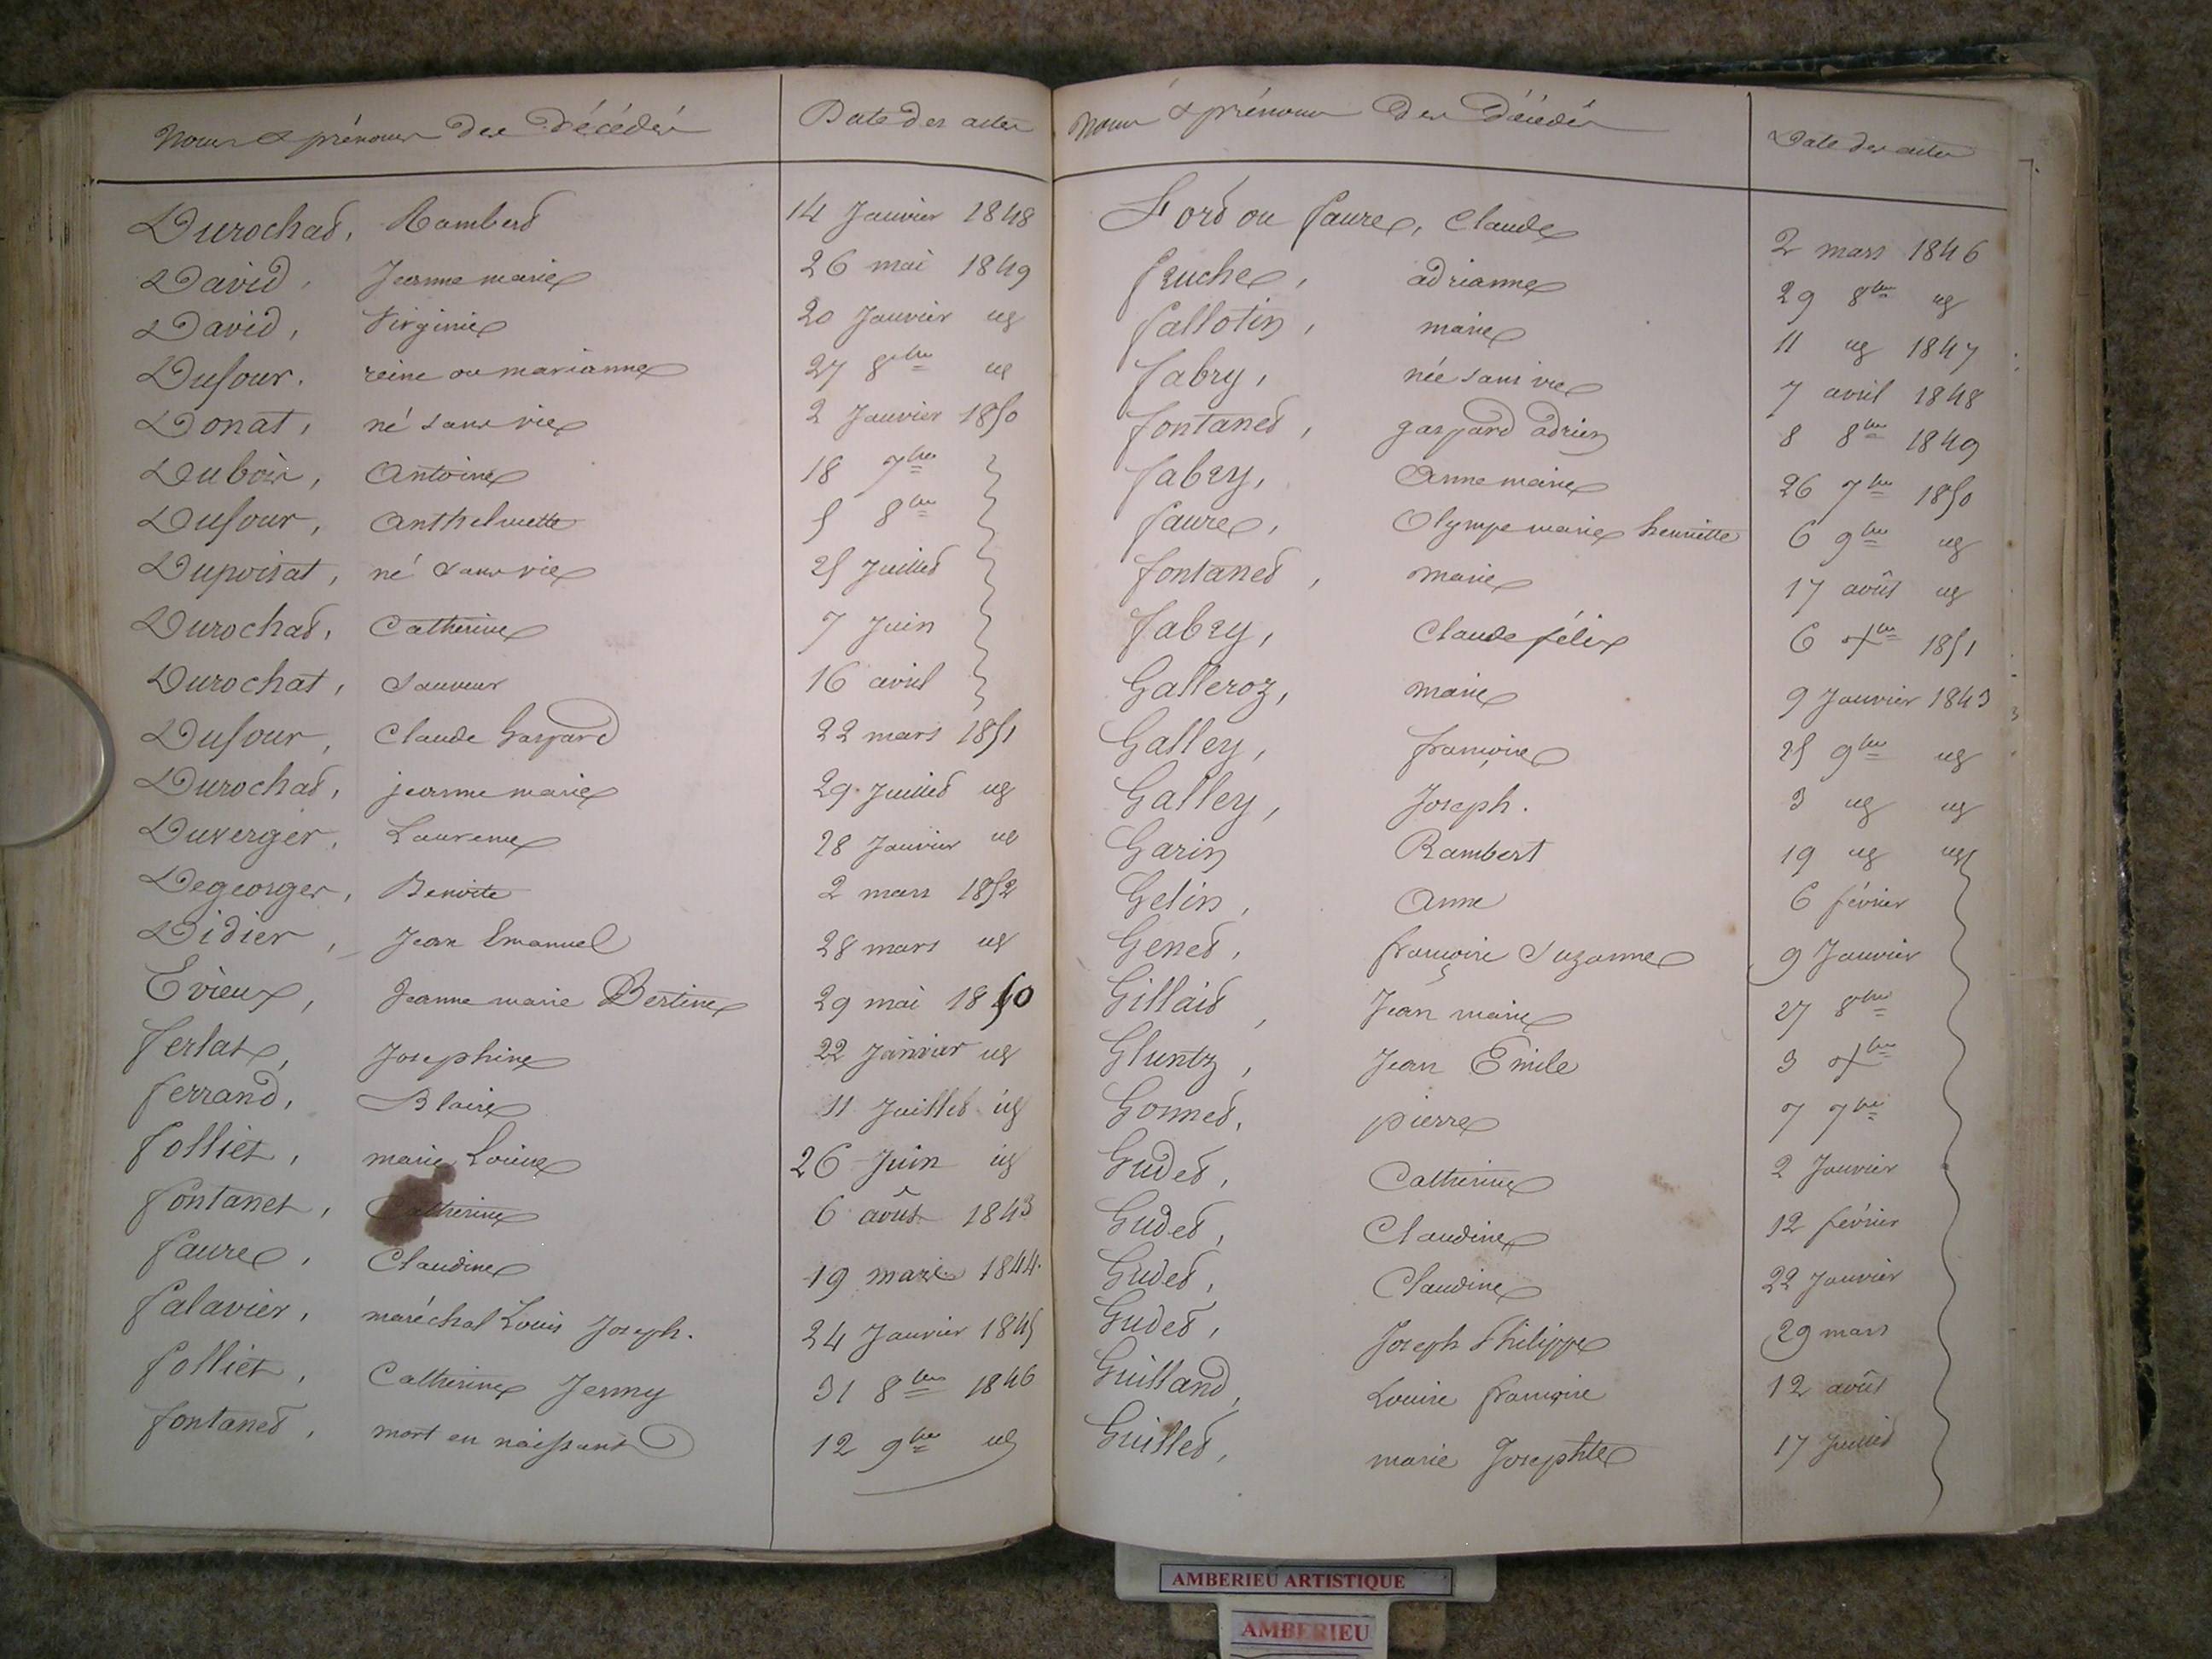 Noms & prénoms des Décédés Date des actes
Durochat, Rambert 14 Janvier 1848
David, Jeanne marie 26 mai 1849
David, Virginie 20 Janvier id
Dufour. reine ou marianne 27 8bre id
Donat, né sans vie 2 Janvier 1850
Dubois, Antoine 18 7bre
Dufour, Anthelmette 5 8bre
Dupoisat, né sans vie 25 Juillet
Durochat, Catherine 7 Juin
Durochat, Sauveur 16 avril
Dufour, Claude Gaspard 22 mars 1851
Durochat, jeanne marie 29 Juillet id
Duverger, Laurence 28 Janvier id
Degeorges, Benoite 2 mars 1852
Didier, Jean Emanuel 28 mars id
Evieux, Jeanne marie Bertine 29 mai 1850
Ferlat, Josephine 22 Janvier id
ferrand, Blaise 11 Juillet id
folliet, marie Louise 26 Juin id
fontanet, Catherine 6 août 1843
faure, Claudine 19 mars 1844.
falavier, maréchal Louis Joseph. 24 Janvier 1845
folliet, Catherine Jenny 31 8bre 1846
fontanet, mort en naissant 12 9bre id
Noms & prénoms des Décédés Date des actes
Ford ou faure, Claude 2 mars 1846
fruche, adrianne 29 8bre id
fallotin, marie 11 id 1847
fabry, née sans vie 7 avril 1848
fontanet, gaspard adrien 8 8bre 1849
fabry, Anne marie 26 7bre 1850
faure, Olympe marie henriette 6 9bre id
fontanet, marie 17 août id
fabry, Claude félix 6 Xbre 1851
Galleroz, marie 9 Janvier 1843
Galley, françoise 25 9bre id
Galley, Joseph. 3 id id
Garin Rambert 19 id id
Gelin, Anne 6 février
Genet, françoise Suzanne 9 Janvier
Gillaid, Jean marie 27 8bre
Gluntz, Jean Emile 3 Xbre
Gonnet, pierre 7 7bre
Gudet, Catherine 2 Janvier
Gudet, Claudine 12 février
Gudet, Claudine 22 Janvier
Gudet, Joseph Philippe 29 mars
Guilland, Louise françoise 12 août
Guillet, marie Josephte 17 Juillet
AMBERIEU ARTISTIQUE
AMBERIEU